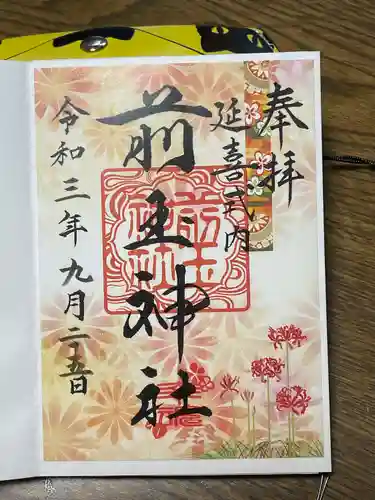 奉拝
延喜式内
前玉神社
令和三年九月二五日
前玉神社